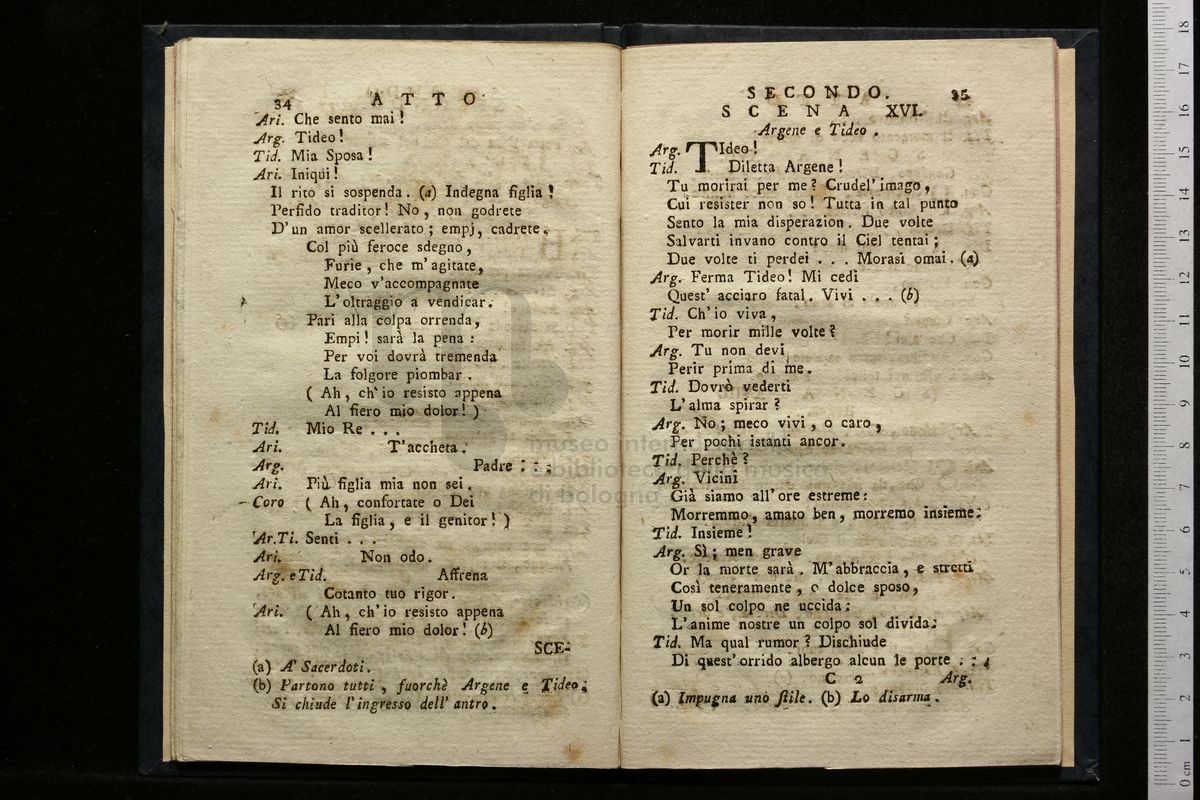 34 ATTO
Ari. Che sento mai!
Arg. Tideo!
Tid. Mia Sposa!
Ari. Iniqui!
Il rito si sospenda. (a) Indegna figlia!
Perfido traditor! No, non godrete
D'un amor scellerato; empj, cadrete.
Col più feroce sdegno,
Furie, che m'agitate,
Meco v'accompagnate
L'oltraggio a vendicar.
Pari alla colpa orrenda,
Empi! sarà la pena:
Per voi dovrà tremenda
La folgore piombar.
(Ah, ch'io resisto appena
Al fiero mio dolor!)
Tid. Mio Re...
Ari. T'accheta.
Arg. Padre...
Ari. Più figlia mia non sei.
Coro (Ah, confortate o Dei
La figlia, e il genitor!)
Ar.Ti. Senti...
Ari. Non odo.
Arg. e Tid. Affrena
Cotanto tuo rigor.
Ari. (Ah, ch'io resisto appena
Al fiero mio dolor! (b)
SCE-
(a) A' Sacerdoti.
(b) Partono tutti, fuorchè Argene e Tideo.
Si chiude l'ingresso dell'antro.
SECONDO. 35
SCENA XVI.
Argene e Tideo.
Arg. TIdeo!
Tid. Diletta Argene!
Tu morirai per me? Crudel'imago,
Cui resister non so! Tutta in tal punto
Sento la mia disperazion. Due volte
Salvarti invano contro il Ciel tentai;
Due volte ti perdei... Morasi omai. (a)
Arg. Ferma Tideo! Mi cedi
Quest'acciaro fatal. Vivi... (b)
Tid. Ch'io viva,
Per morir mille volte?
Arg. Tu non devi
Perir prima di me.
Tid. Dovrò vederti
L'alma spirar?
Arg. No; meco vivi, o caro,
Per pochi istanti ancor.
Tid. Perchè?
Arg. Vicini
Già siamo all'ore estreme:
Morremmo, amato ben, morremo insieme.
Tid. Insieme!
Arg. Sì; men grave
Or la morte sarà. M'abbraccia, e stretti
Così teneramente, o dolce sposo,
Un sol colpo ne uccida:
L'anime nostre un colpo sol divida.
Tid. Ma qual rumor? Dischiude
Di quest'orrido albergo alcun le porte...
C 2 Arg.
(a) Impugna uno stile. (b) Lo disarma.